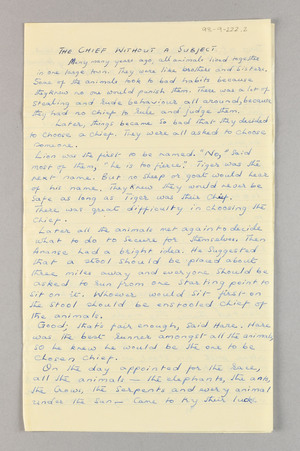 98-9-222.2
THE CHIEF WITHOUT A SUBJECT.
Many many years ago, all animals lived together
in one large town. They were like brothers and sisters.
Some of the animals took to bad habits because
they knew no one would punish them. There was a lot of
stealing and rude behaviour all around, because
they had no chief to rule and judge them.
Later, things became so bad that they decided
to choose a chief. They were all asked to choose
someone.
Lion was the first to be named. "No," said
most of them, "he is too fierce." Tiger was the
next name. But no sheep or goat would hear
of his name. They knew they would never be
safe as long as Tiger was their Chief.
There was great difficulty in choosing the
Chief.
Later all the animals met again to decide
what to do to secure for themselves. Then
Ananse had a bright idea. He suggested
that a stool should be placed about
three miles away and everyone should be
asked to run from one starting point to
sit on it. Whoever would sit first on
the stool should be enstooled Chief of
the animals.
Good; that's fair enough, said Hare. Hare
was the best runner amongst all the animals,
so he knew he would be the one to be
chosen Chief.
On the day appointed for the race,
all the animals — the elephants, the ants,
the Crows, the Serpents and every animal
under the sun — came to try their luck.